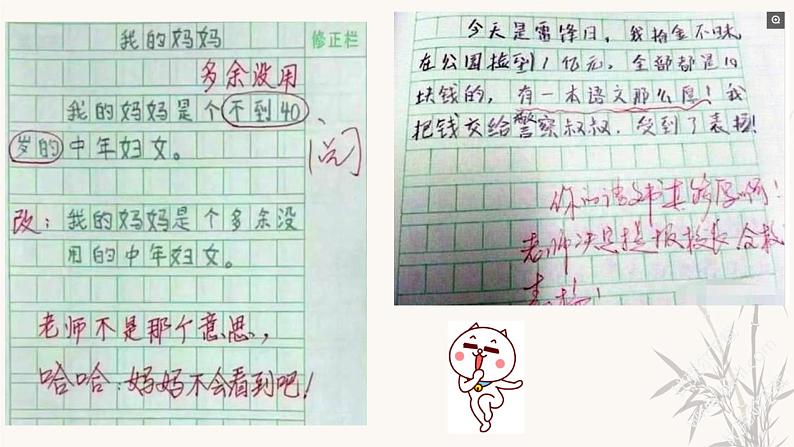 我的妈妈
修正栏
多余没用
我的妈妈是个不到40
岁的中年妇文。
改：我的妈妈是个多余没
用的中年妇文。
老师不是那个意思，
哈哈：妈妈不会看到吧！
今天是雷锋日，我拾金不昧，
在公园捡到1亿元，全部都是10
块钱的，有一本语文那么厚！我
把钱交给警察叔叔，受到了表扬！
你的语文书真够厚啊！
老师决定提报校长全校
表扬！